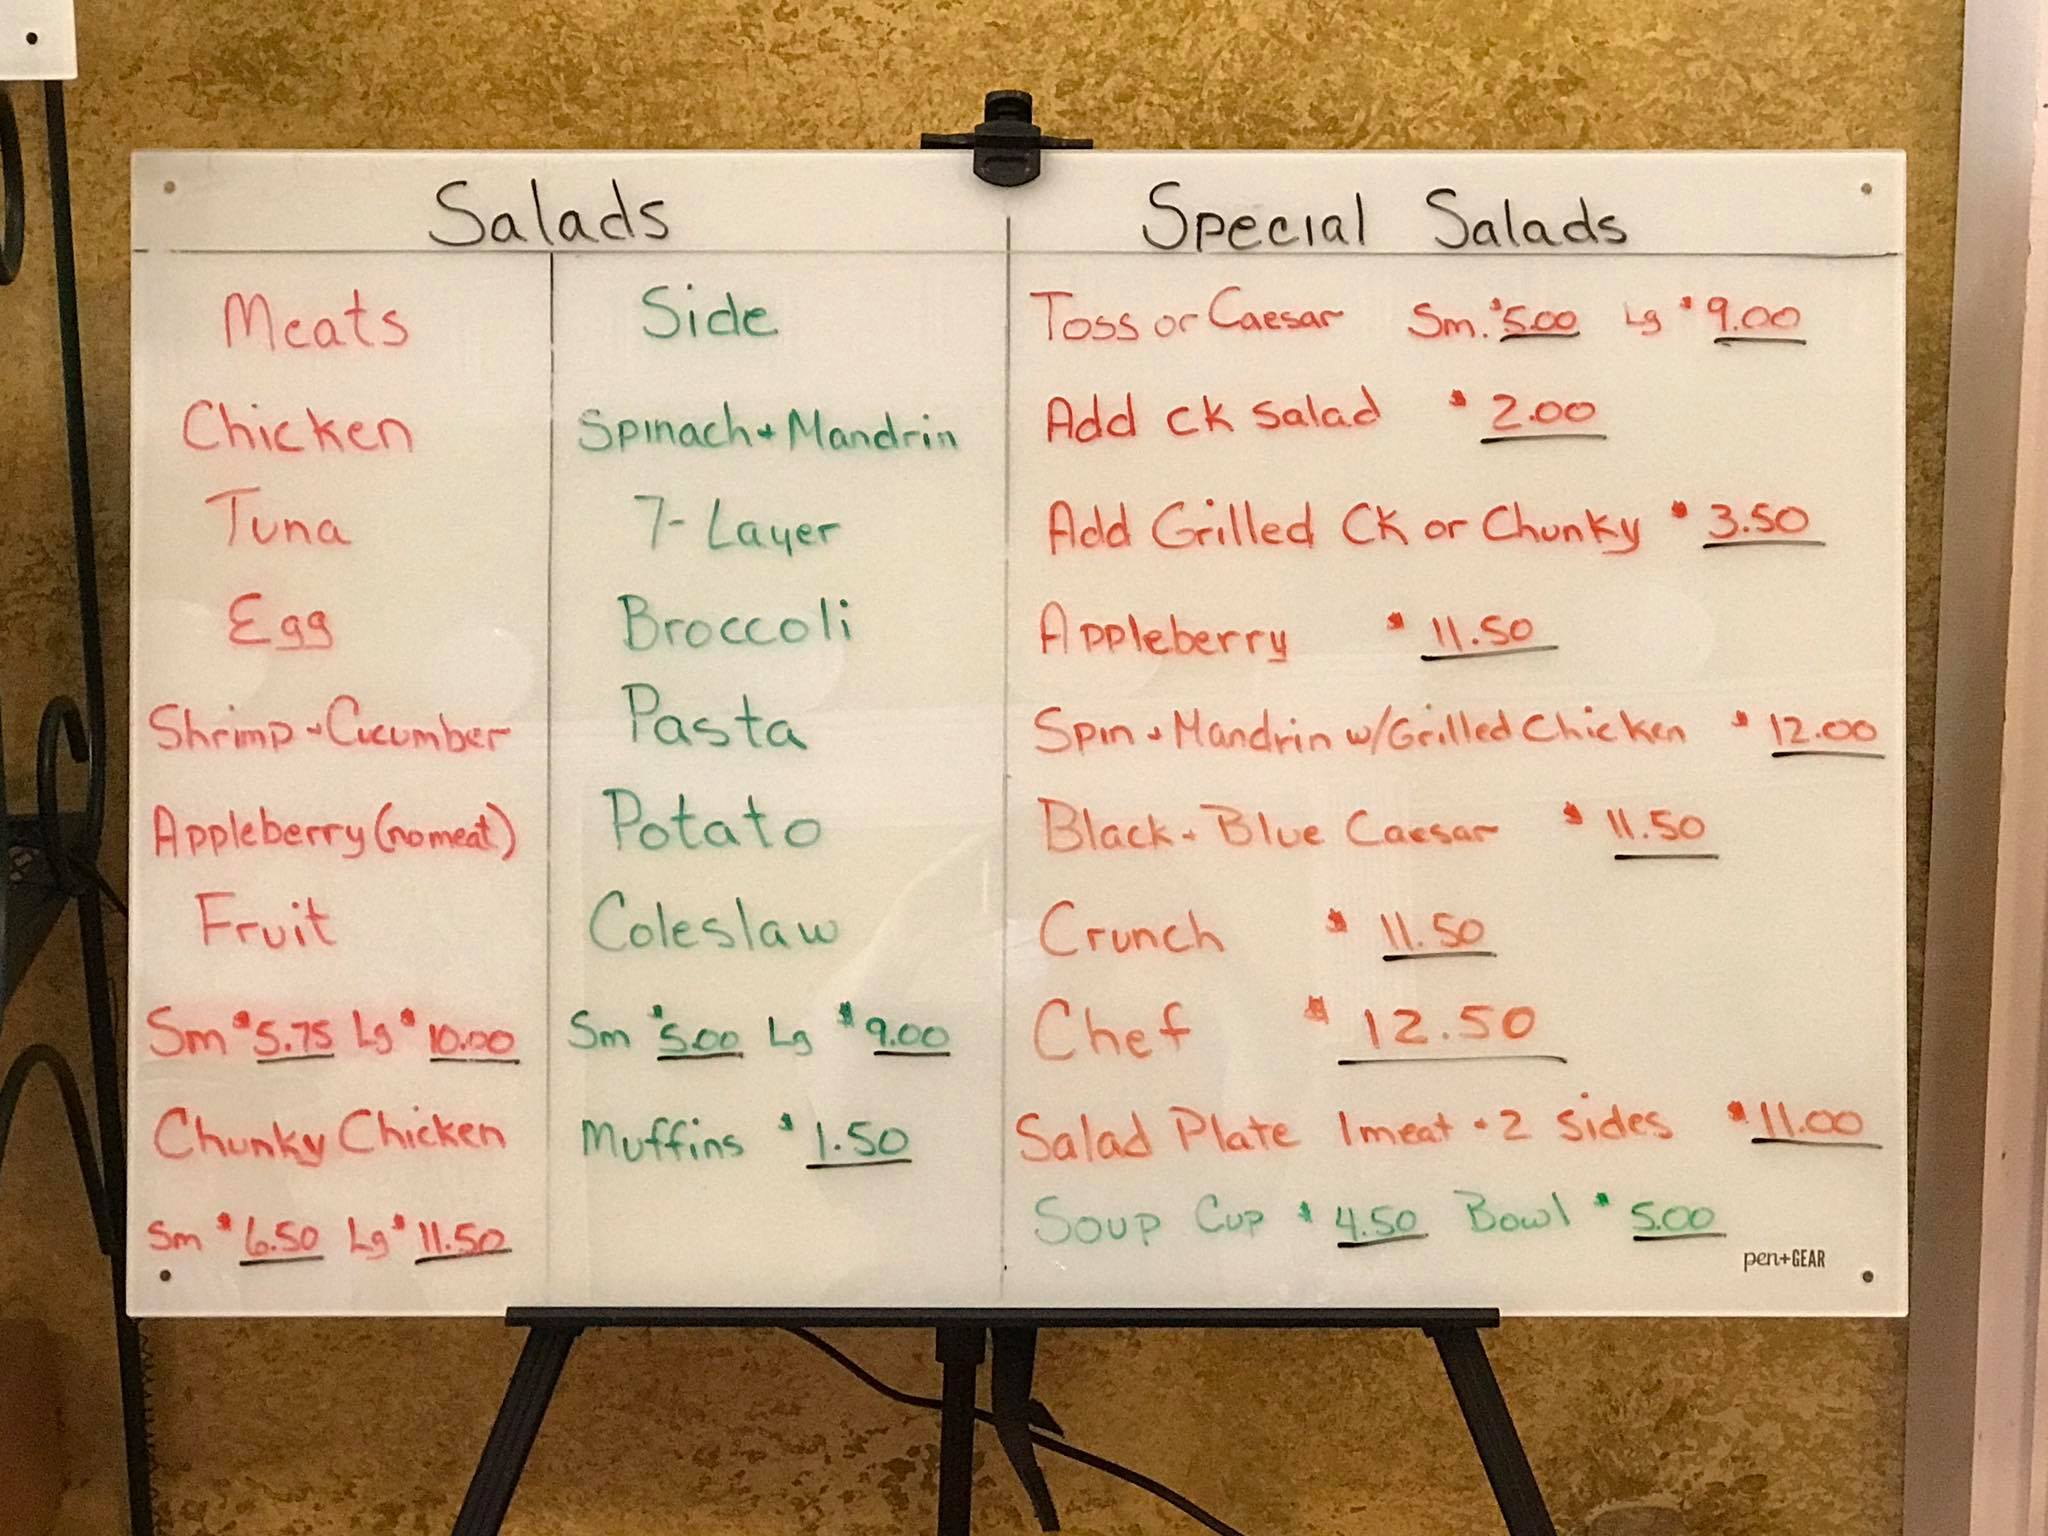 Salads
Meats
Chicken
Tuna
Egg
Shrimp + Cucumber
Appleberry (no meat)
Fruit
Sm $5.75 Lg $10.00
Chunky Chicken
Sm $6.50 Lg $11.50
Side
Spinach + Mandrin
7-Layer
Broccoli
Pasta
Potato
Coleslaw
Sm $5.00 Lg $9.00
Muffins $1.50
Special Salads
Toss or Caesar Sm. $5.00 Lg $9.00
Add CK Salad $2.00
Add Grilled CK or Chunky $3.50
Appleberry $11.50
Spin + Mandrin w/Grilled Chicken $12.00
Black + Blue Caesar $11.50
Crunch $11.50
Chef $12.50
Salad Plate 1 meat + 2 sides $11.00
Soup Cup $4.50 Bowl $5.00
pen+GEAR